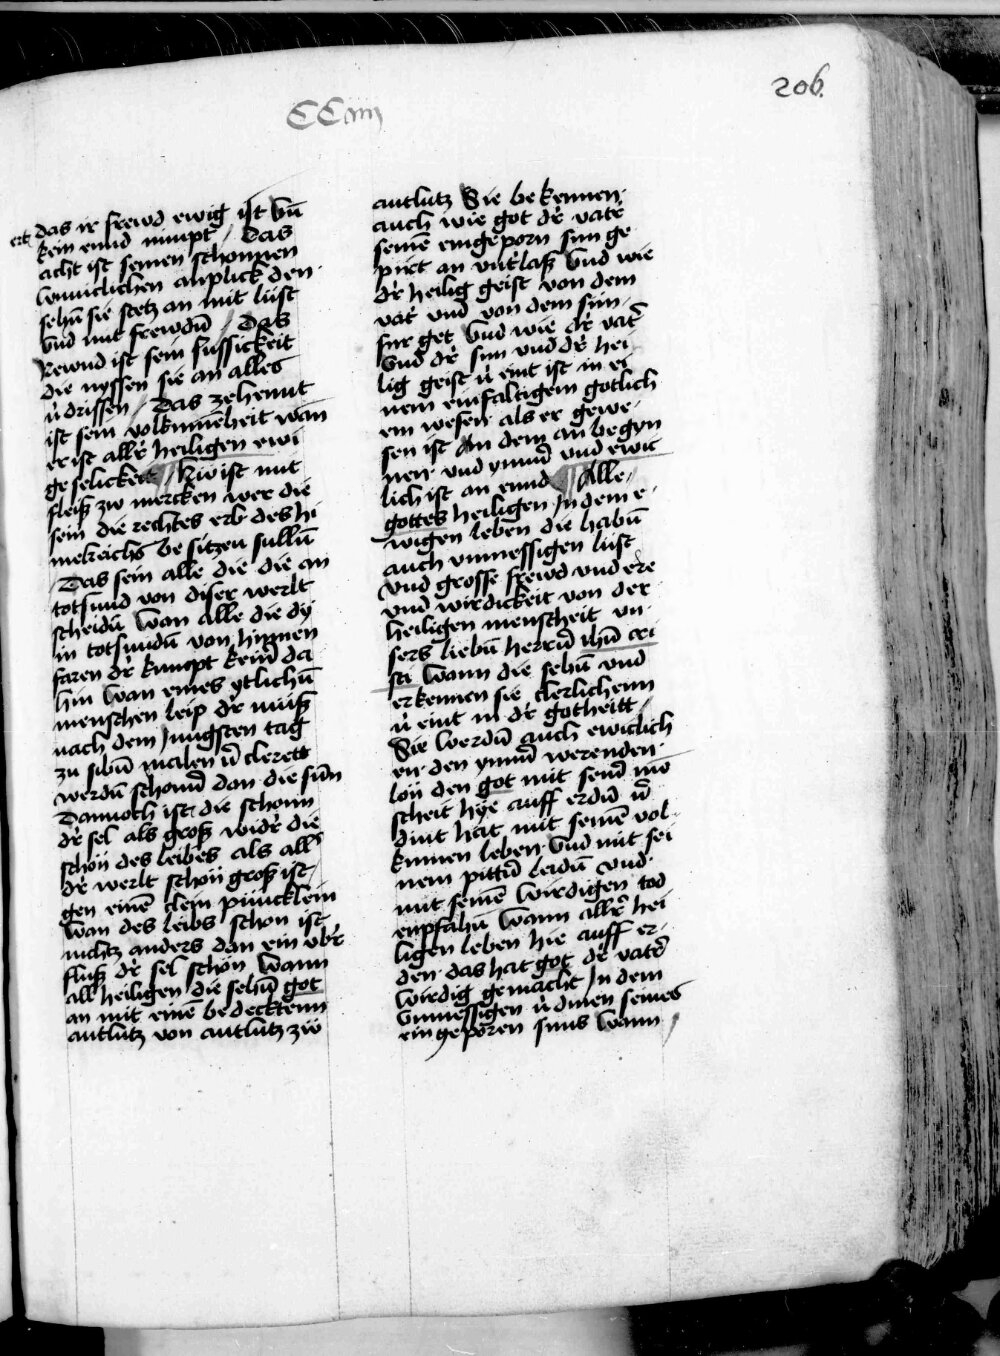 206.
CCiiij
das ir frewd ewig ist vn̄
kein ennd nimpt / Das
acht ist seinen schonnen
wuniclichen anplick den
sehn̄ sie stetz an mit lüst
vnd mit frewdn̄ / Das
Newnd ist sein sussickeit
die nyssen sie an alles
v̓drissen / Das zehennt
ist sein volkumēheit wan
er ist all'r heiligen ewi
ge selickeit / Hiw ist mit
fleiß zw mercken wer die
sein die rechtes erb des hi
melreichs besitzen sulln̄
/ Das sein alle die die an
totsund von diser werlt
scheidn̄ wan alle die dy
in totsundn̄ von hinnen
faren d'r kumpt kein̄ da
hin wan eines ytlichn̄
menschen leip d'r müß
nach dem Jungsten tag
zu sibn̄ malen v̓clerett
werdn̄ schon̄ dan die sūn
Dannoch ist die schonn
d'r sel als groß wid'r die
schön des leibes als all'
d'r werlt schön groß ist
gen einē clein püncklein
wan des leibs schon ist
nichtz anders dan ein vb'r
fluß d'r sel schön Wann
all heiligen die sehn̄ got
an mit einē bedecktenn
antlutz von antlutz zü
antlutz Sie bekennen
auch wie got d'r vat'r
seinē eingeporn sun ge
pirt an vnt'laß Vnd wie
d'r heilig geist von dem
vat' vnd von dem sün
fur get Vnd wie d'r vat'
Vnd d'r sun vnd d'r hei
lig geist v̓eint ist in ei
nem einfaltigem gotlich
em wesen als er gewe
sen ist An dem an begyn
nen vnd ymm' vnd ewic
lich ist an ennd ¶ Alle
gottes heiligen Jn dem e
wigen leben die habn̄
auch vnmessigen lüst
Vnd grosse frewd vnd ere
vnd wirdickeit von der
heiligen menscheit vn
sers liebn̄ herrn̄ ihū cri
sti wann die sehn̄ vnd
erkennen sie clerlichenn
v̓eint in d'r gotheitt /
Sie werdn̄ auch ewiclich
en den ymm' werenden
lön den got mit sein' me
scheit hye auff erdn̄ v̓
dint hat mit seinē vol
kumen leben Vnd mit sei
nem pittn̄ leidn̄ vnd
mit seinē wirdigen tod
enpfahn̄ Wann all'r hei
ligen leben hie auff er
den das hat got d'r vat'
wirdig gemacht Jn dem
Vnmessigen v̓dinen seines
eingeporen suns Wann /